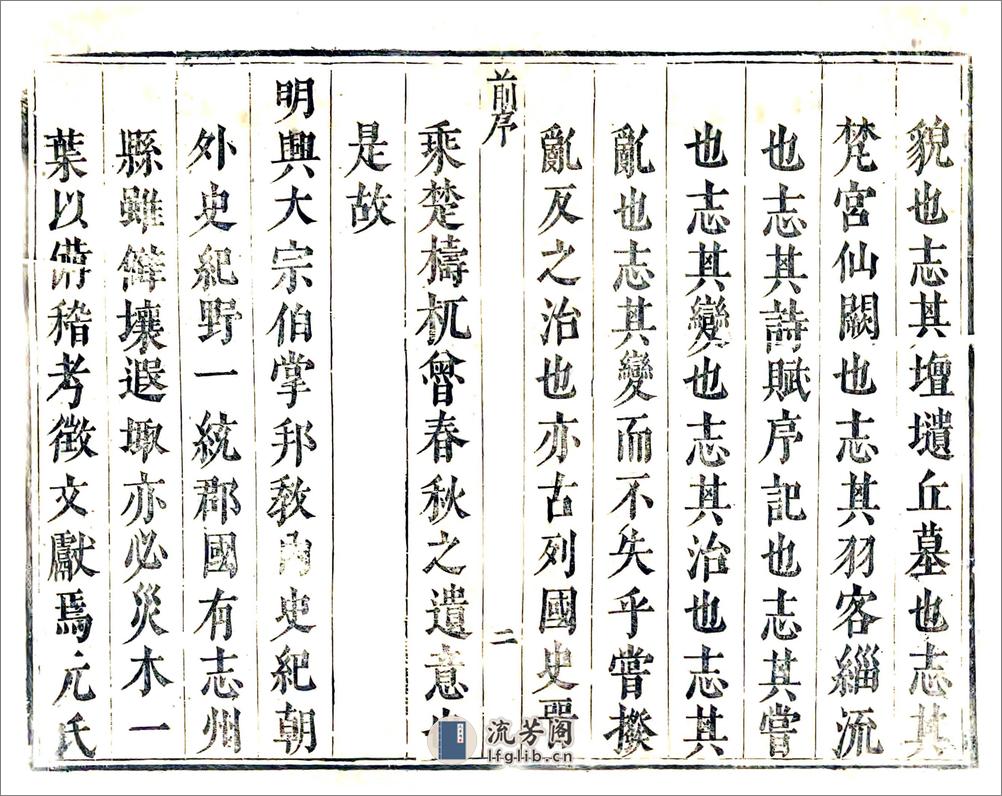 貌也志其壇壝丘墓也志其
梵宮仙闕也志其羽客緇流
也志其詩賦序記也志其嘗
也志其變也志其治也志其
亂也志其變而不失乎嘗撥
亂反之治也亦古列國史
前序
二
乘楚檮杌魯春秋之遺意也
是故
明興大宗伯掌邦敎內史紀朝
外史紀野一統郡國有志州
縣雖僻壤遐陬亦必災木一
葉以備稽考徵文獻焉元氏
流芳阁
lfglib.cn